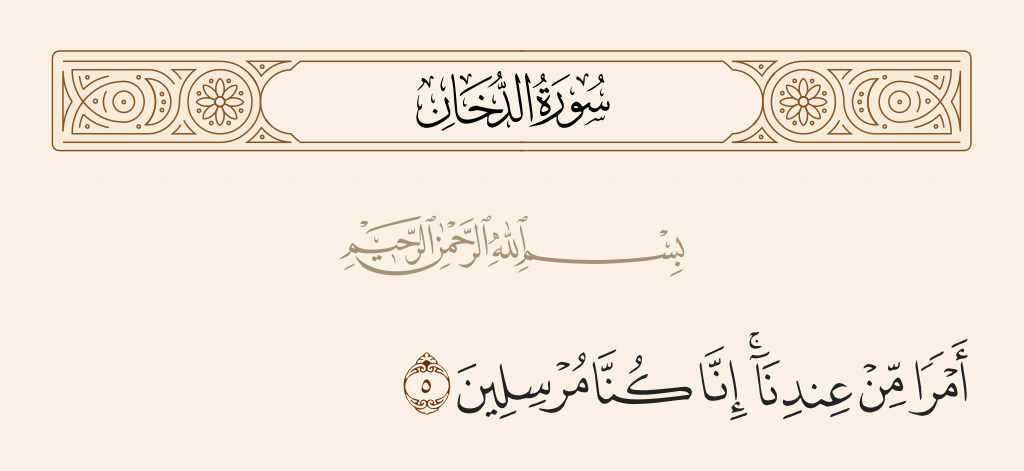 سُورَةُ الدُّخَانِ
بِسْمِ ٱللَّهِ ٱلرَّحْمَٰنِ ٱلرَّحِيمِ
أَمْرًا مِّنْ عِندِنَآ ۚ إِنَّا كُنَّا مُرْسِلِينَ ٥